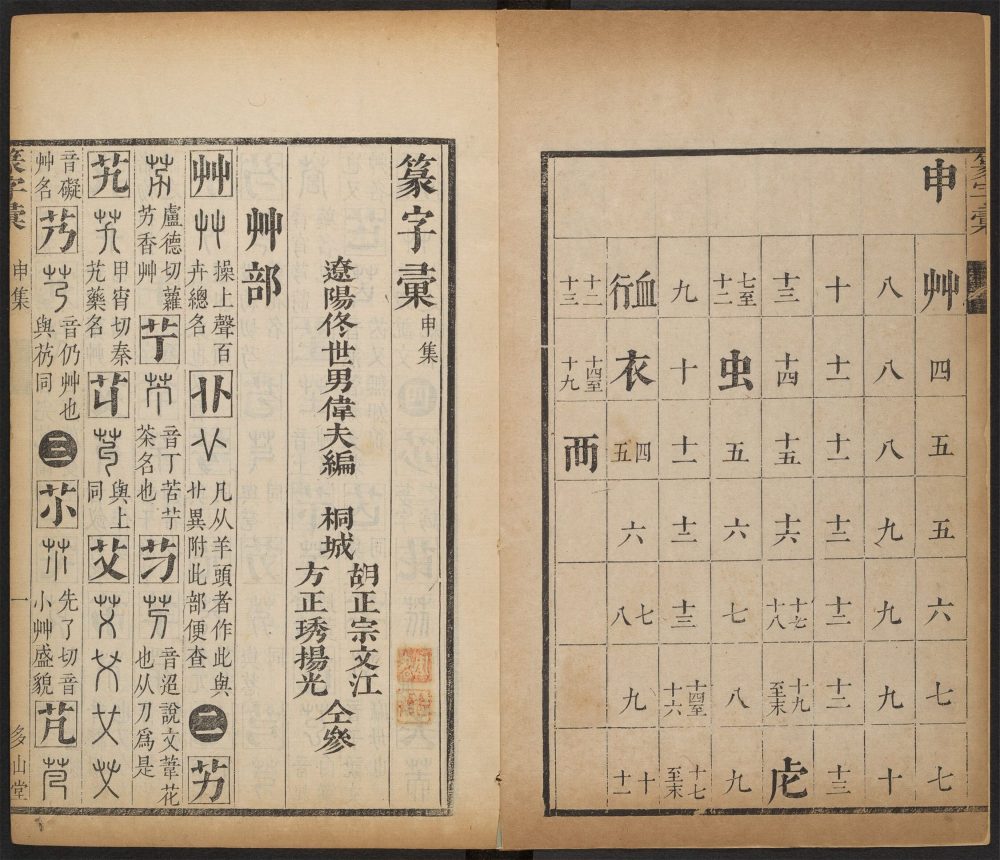 申
艸 四 五 五 六 七 七
八 八 八 九 九 九 十
十 十一 十一 十二 十二 十二 十三
十三 十四 十五 十六 十七十八 十九至末 虍
七至十二 虫 五 六 七 八 九
九 十 十一 十二 十三 十四至十六 十七至末
血行 衣 四五 六 七八 九 十十一
十二十三 十四至十九 襾
篆字彙 申集
遼陽佟世男偉夫編 桐城 胡正宗文江 方正琇揚光 仝參
艸部
艸 艸 操上聲百卉總名 凡从羊頭者作此與廿異附此部便查 二 艻
艻 盧德切蘿艻香艸 艼 艼 音丁苦艼茶名也 芀 芀 音迢說文葦花也从刀爲是
艽 艽 甲宵切秦艽藥名 與上同 艾 艾 艾 艾 艾
音礙艸名 艿 艿 音仍艸也與芿同 三 先了切音小艸盛貌 芃 芃
篆字彙 申集 一 多山堂